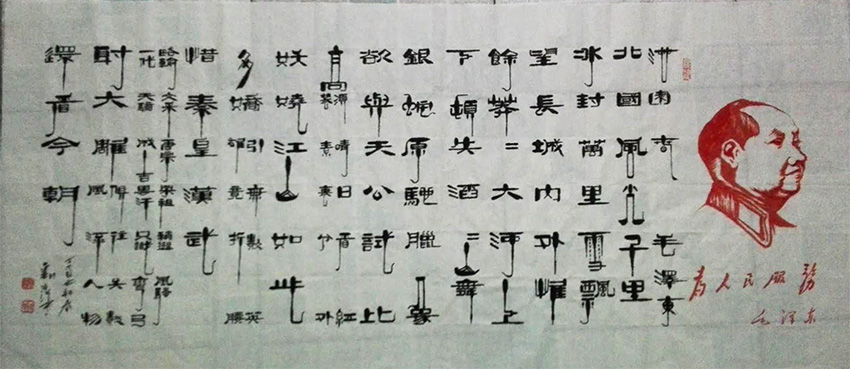 為人民服務
毛澤東
沁園春 毛澤東
北國風光千里
冰封萬里雪飄
望長城內外惟
餘莽=大河上
下頓失滔=山舞
銀蛇原馳臘象
欲與天公試比
高須晴日看紅
裝素裹分外
妖嬈江山如此
多嬌引無數英
雄竞折腰
惜秦皇漢武
略輸文采唐宗宋祖稍遜風騷
一代天驕成吉思汗只識彎弓
射大雕俱往矣數
風流人物
還看今朝